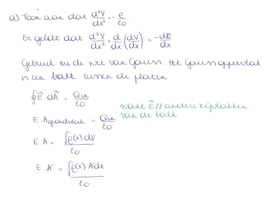 a) Toon aan dat d²V/dx² = -ρ/ε0
Er geldt dat d²V/dx² = d/dx (dV/dx) = -dE/dx
Gebruik nu de wet van Gauss. Het Gaussoppervlak
is een balk tussen de platen
∮E dA = Qin/ε0
E.A = Qin/ε0
want E // andere zijvlakken
van de balk
E.A = ∫ρ(x) dV/ε0
E.A = ∫ρ(x) A dx/ε0